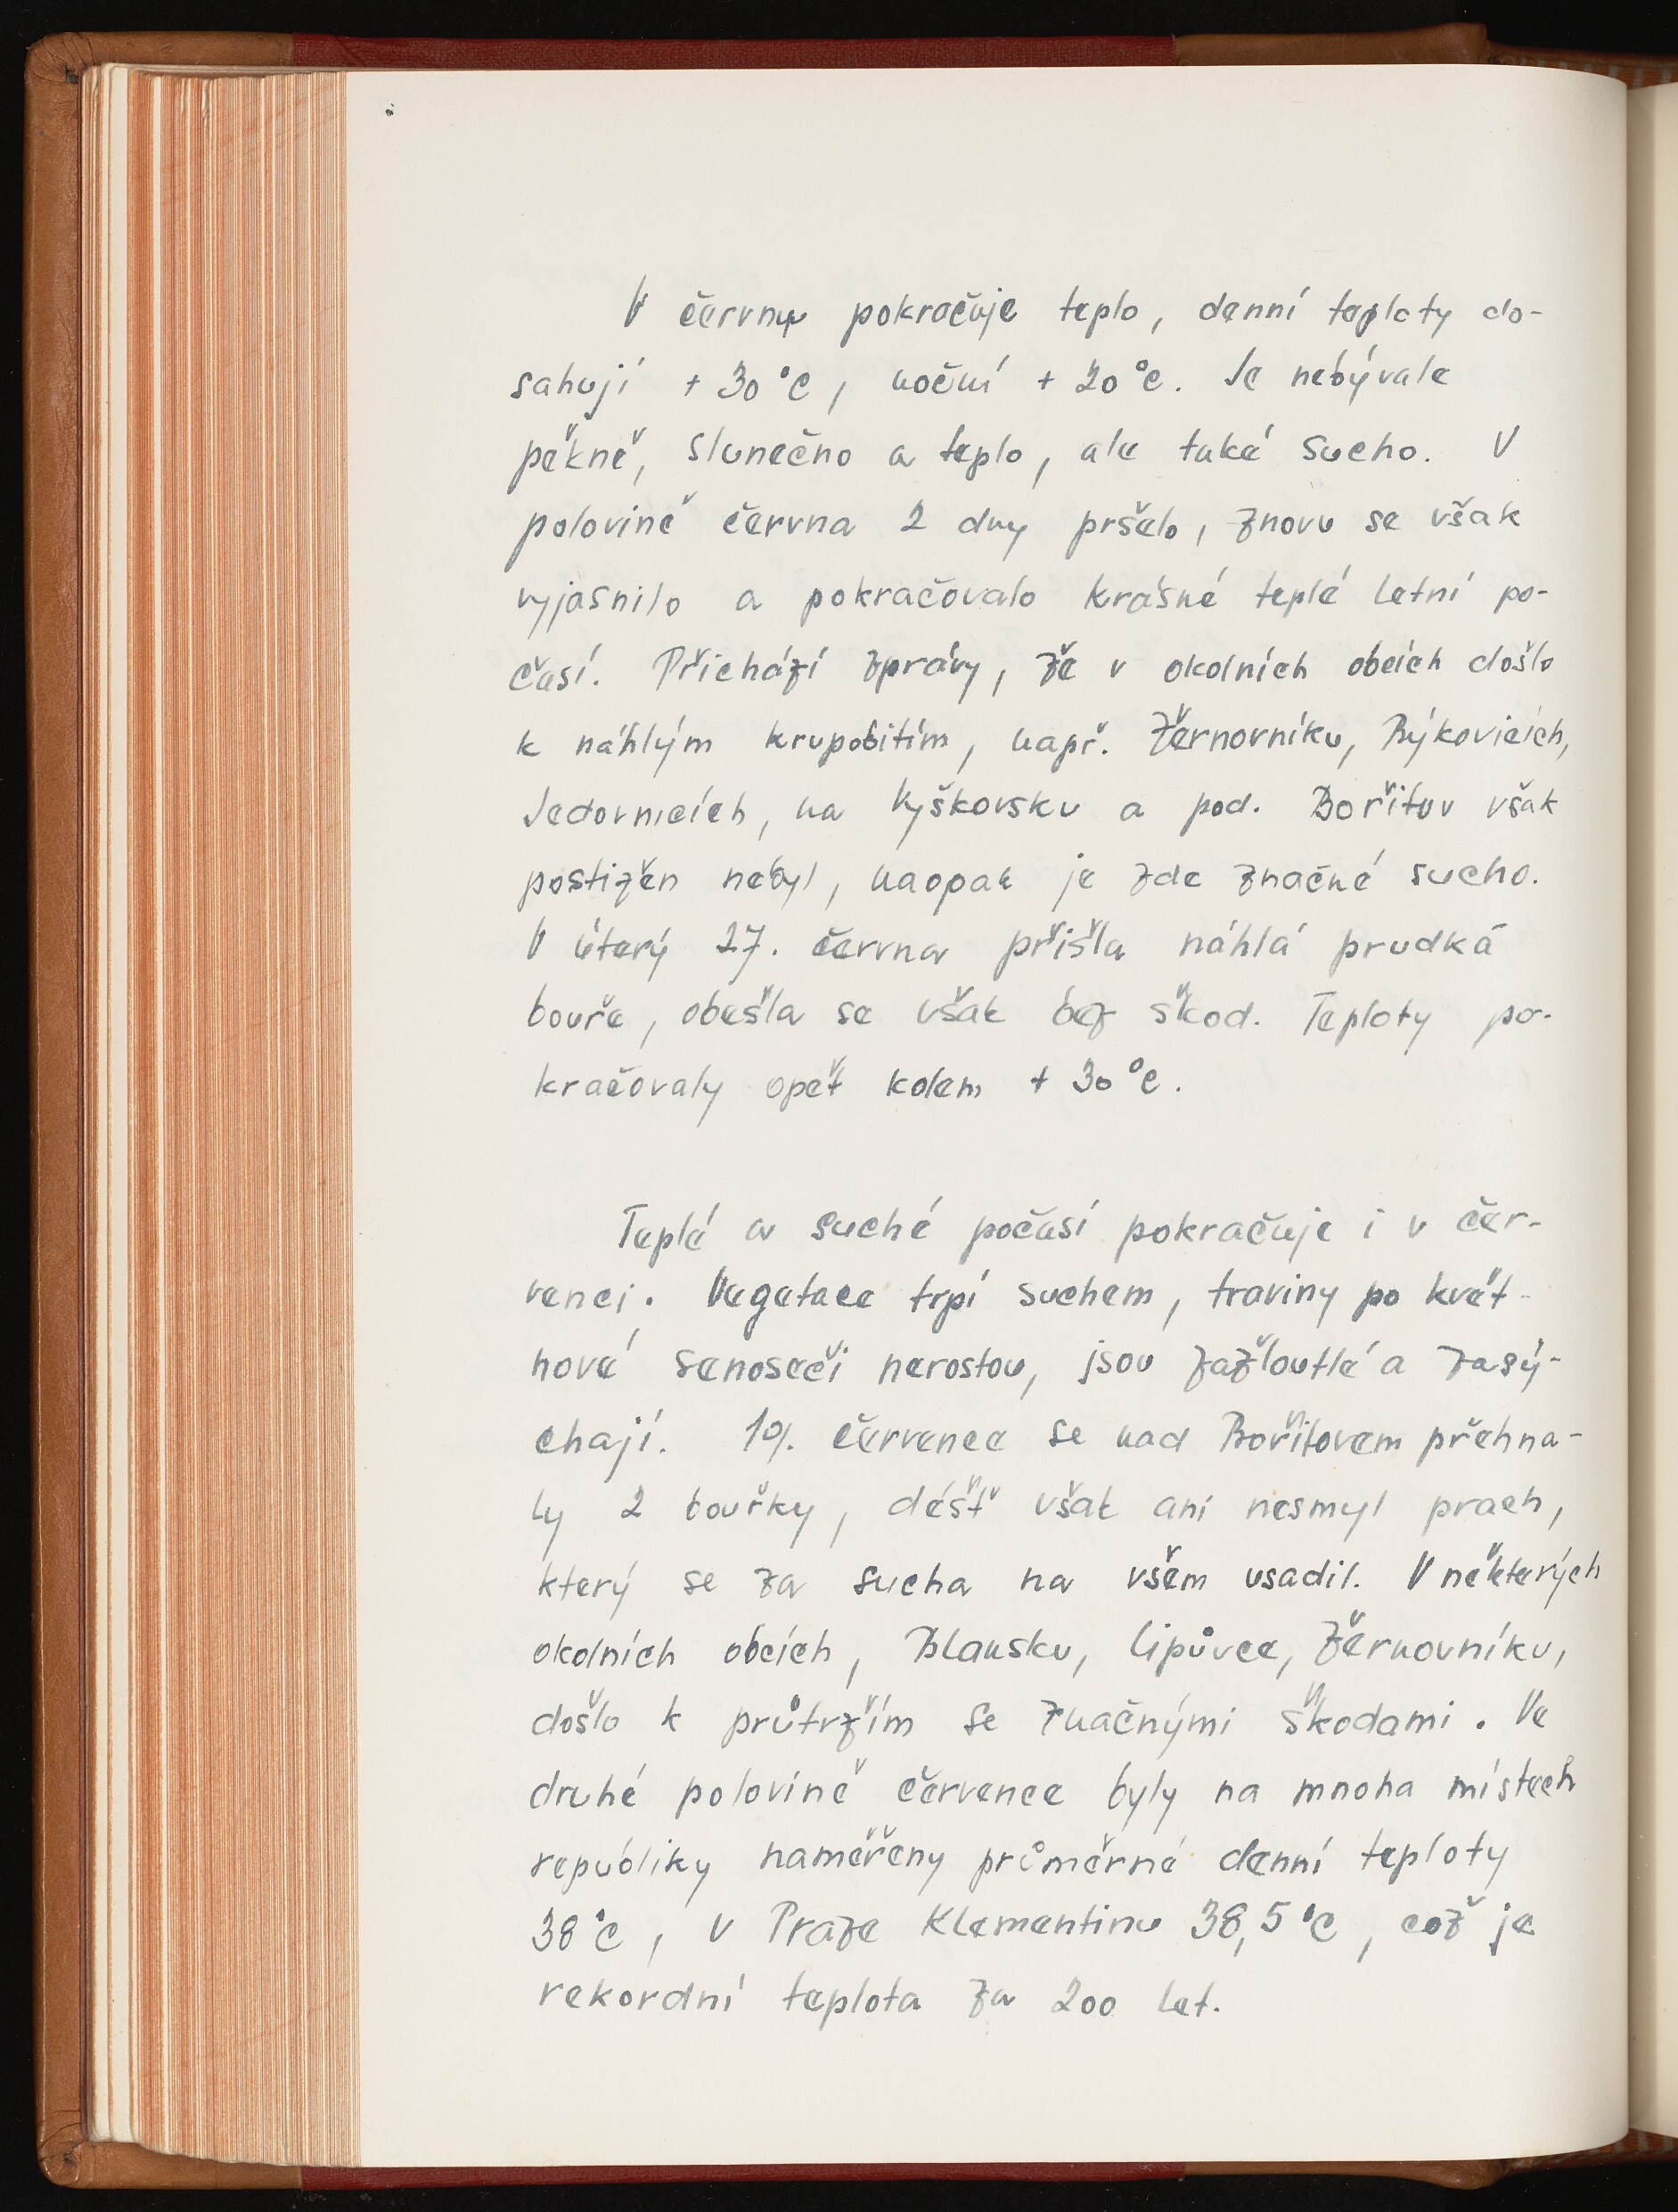 V červnu pokračuje teplo, denní teploty do-
sahují + 30 °C, noční + 20 °C. Je nebývale
pěkně, slunečno a teplo, ale také sucho. V
polovině června 2 dny pršelo, znovu se však
vyjasnilo a pokračovalo krásné teplé letní po-
časí. Přichází zprávy, že v okolních obcích došlo
k náhlým krupobitím, např. Žernovníku, Býkovicích,
Jedovnicích, na Vyškovsku a pod. Bořitov však
postižen nebyl, naopak je zde značné sucho.
V úterý 27. června přišla náhlá prudká
bouře, obešla se však bez škod. Teploty po-
kračovaly opět kolem + 30 °C.
Teplé a suché počasí pokračuje i v čer-
venci. Vegetace trpí suchem, traviny po květ-
nové senoseči nerostou, jsou zažloutlé a zasý-
chají. 10. července se nad Bořitovem přehna-
ly 2 bouřky, déšť však ani nesmyl prach,
který se za sucha na všem usadil. V některých
okolních obcích, Blansku, Lipůvce, Žernovníku,
došlo k průtržím se značnými škodami. Ve
druhé polovině července byly na mnoha místech
republiky naměřeny průměrné denní teploty
38 °C, v Praze Klementinu 38,5 °C, což je
rekordní teplota za 200 let.